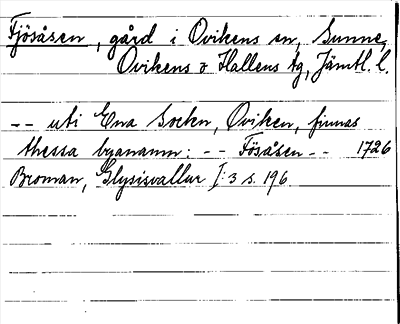 Fjösåsen, gård i Ovikens sn, Sunne,
Ovikens o Hallens tg, Jämtl. l.
-- uti Ena Socken, Oviken, finnas
thessa byanamn: -- Fösåsen -- 1726
Broman, Glysisvallur I:3 s. 196